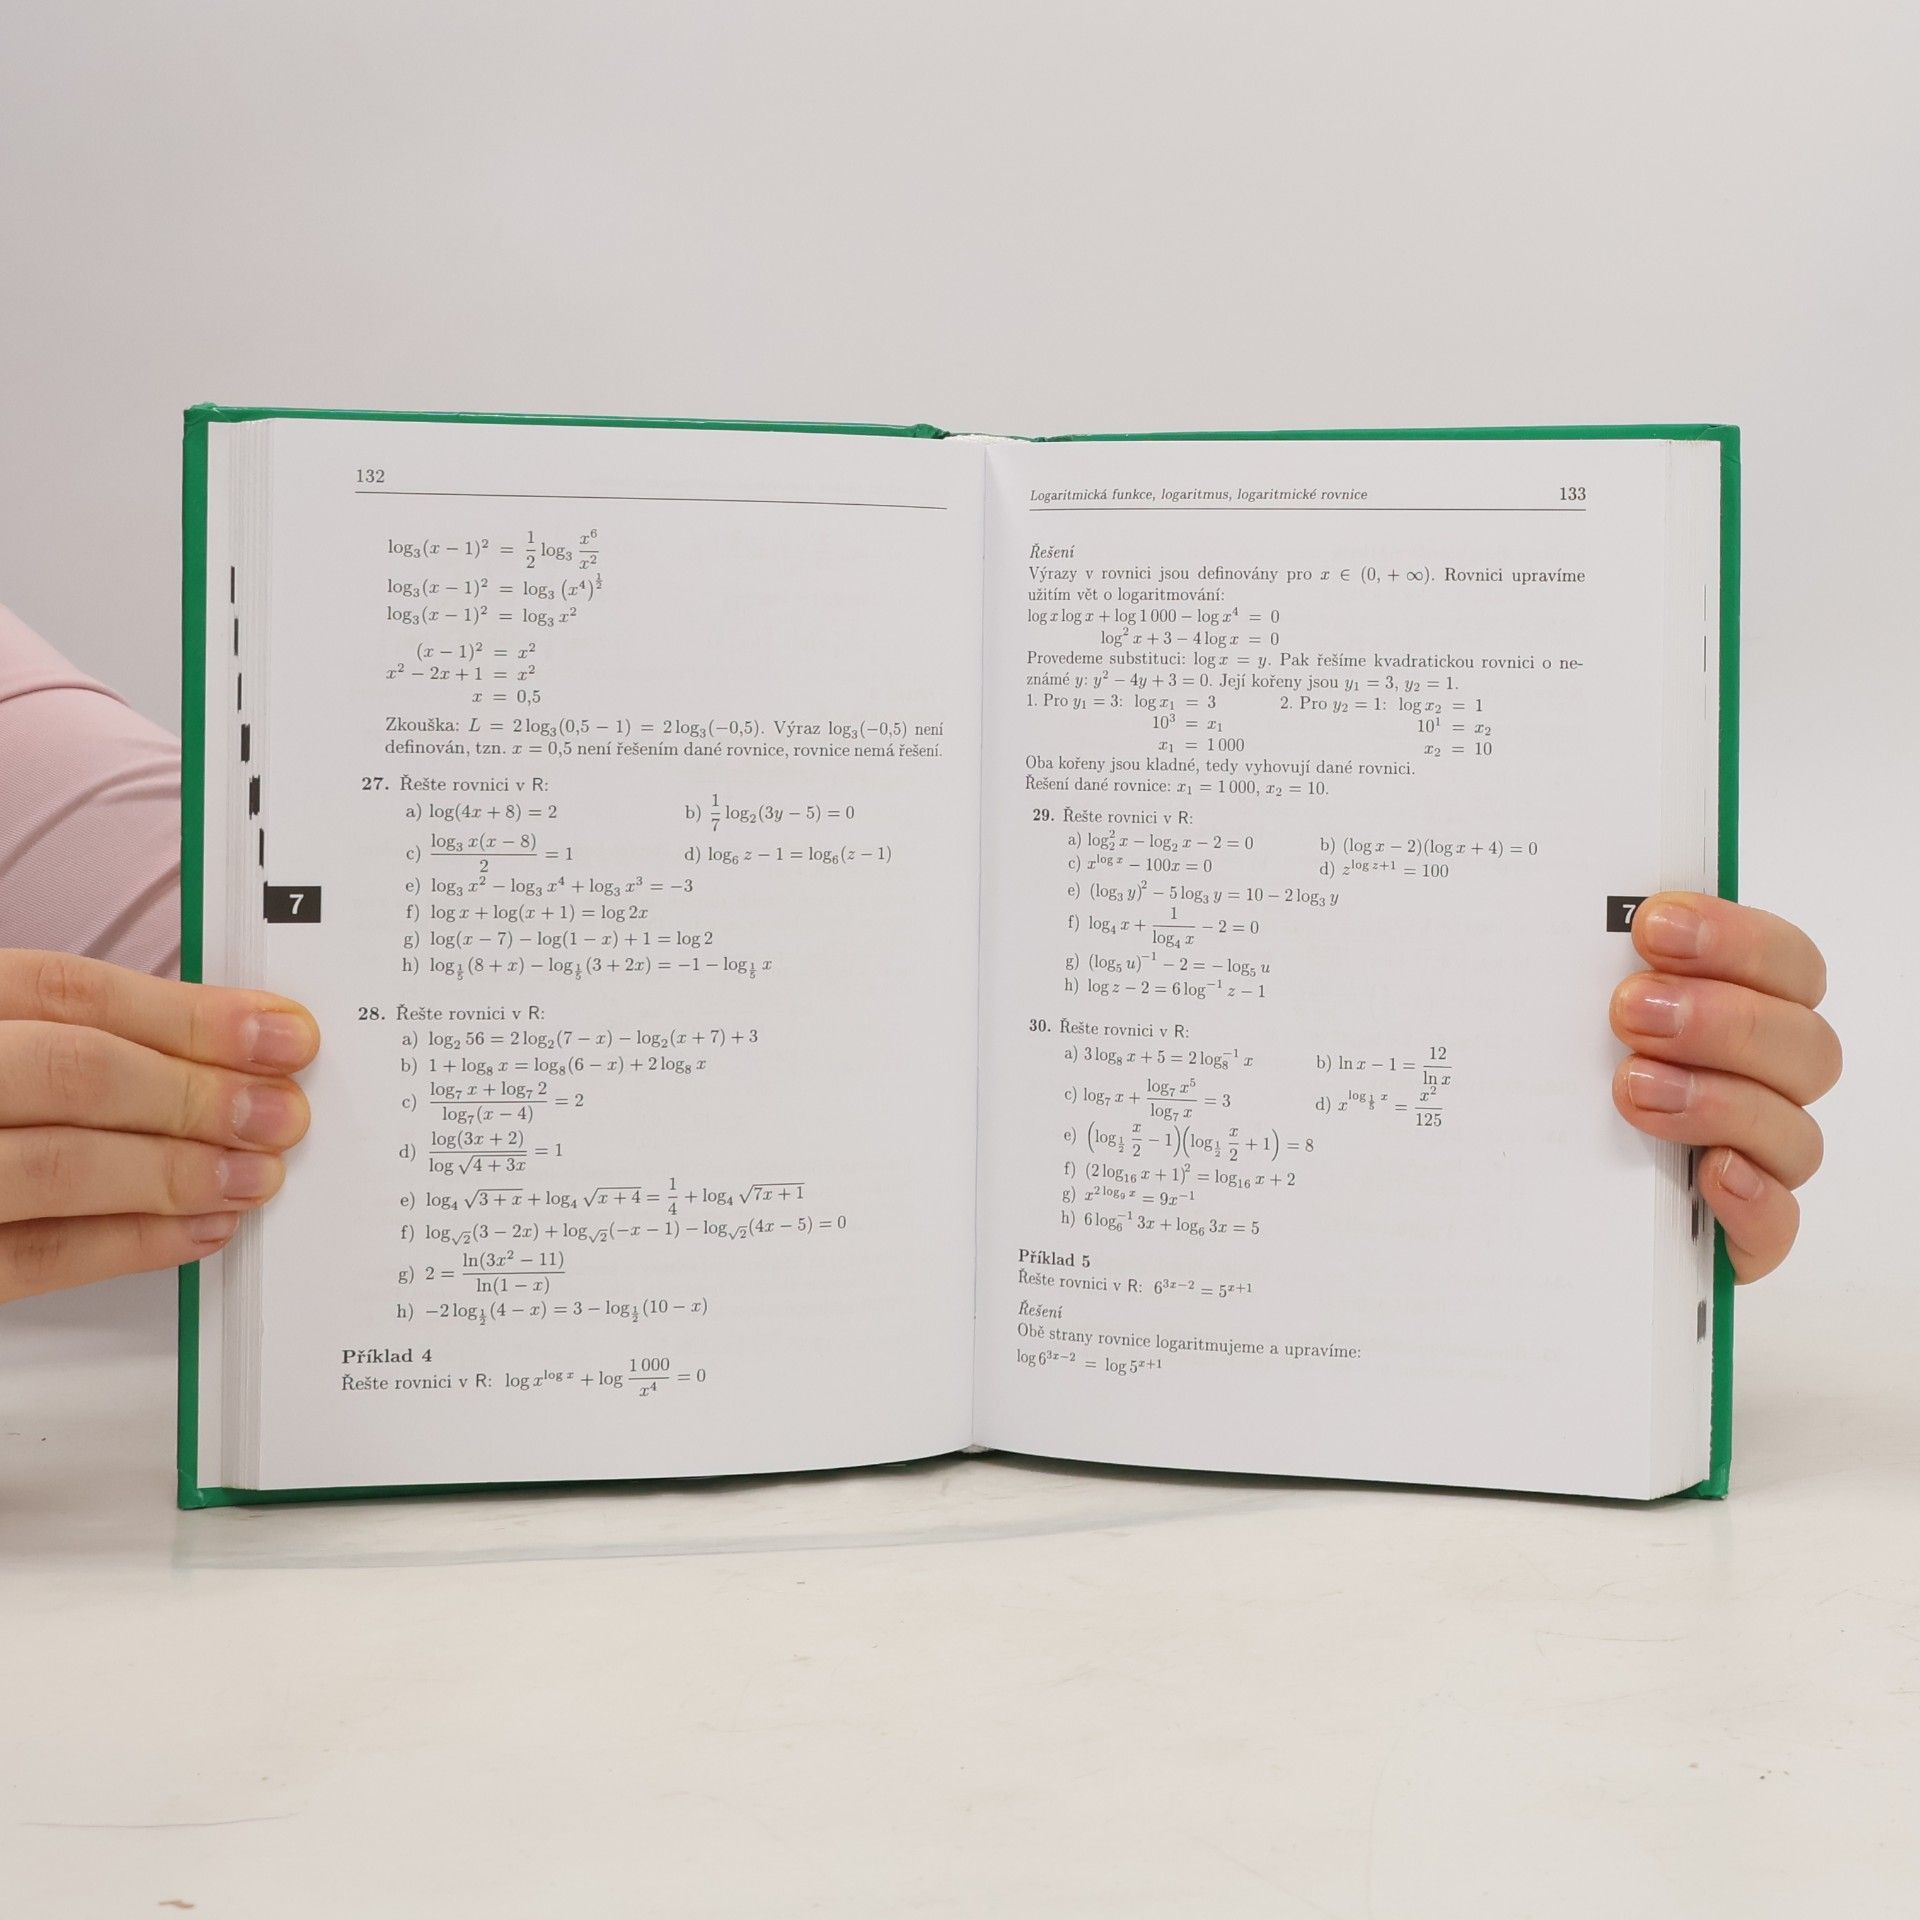 132
log₃(x − 1)² = 1/2 log₃ x⁶/x²
log₃(x − 1)² = log₃ (x⁴)^(1/2)
log₃(x − 1)² = log₃ x²
(x − 1)² = x²
x² − 2x + 1 = x²
x = 0,5
Zkouška: L = 2 log₃(0,5 − 1) = 2 log₃(−0,5). Výraz log₃(−0,5) není
definován, tzn. x = 0,5 není řešením dané rovnice, rovnice nemá řešení.
27. Řešte rovnici v R:
a) log(4x + 8) = 2 b) 1/7 log₂(3y − 5) = 0
c) (log₃ x(x − 8))/2 = 1 d) log₆ z − 1 = log₆(z − 1)
e) log₃ x² − log₃ x⁴ + log₃ x³ = −3
f) log x + log(x + 1) = log 2x
g) log(x − 7) − log(1 − x) + 1 = log 2
h) log_(1/5)(8 + x) − log_(1/5)(3 + 2x) = −1 − log_(1/5) x
28. Řešte rovnici v R:
a) log₂ 56 = 2 log₂(7 − x) − log₂(x + 7) + 3
b) 1 + log₈ x = log₈(6 − x) + 2 log₈ x
c) (log₇ x + log₇ 2)/(log₇(x − 4)) = 2
d) (log(3x + 2))/(log √(4 + 3x)) = 1
e) log₄ √(3 + x) + log₄ √(x + 4) = 1/4 + log₄ √(7x + 1)
f) log_√2(3 − 2x) + log_√2(−x − 1) − log_√2(4x − 5) = 0
g) 2 = (ln(3x² − 11))/(ln(1 − x))
h) −2 log_(1/2)(4 − x) = 3 − log_(1/2)(10 − x)
Příklad 4
Řešte rovnici v R: log x^(log x) + log 1 000/x⁴ = 0
7
Logaritmická funkce, logaritmus, logaritmické rovnice 133
Řešení
Výrazy v rovnici jsou definovány pro x ∈ (0, + ∞). Rovnici upravíme
užitím vět o logaritmování:
log x log x + log 1 000 − log x⁴ = 0
log² x + 3 − 4 log x = 0
Provedeme substituci: log x = y. Pak řešíme kvadratickou rovnici o ne-
známé y: y² − 4y + 3 = 0. Její kořeny jsou y₁ = 3, y₂ = 1.
1. Pro y₁ = 3: log x₁ = 3 2. Pro y₂ = 1: log x₂ = 1
10³ = x₁ 10¹ = x₂
x₁ = 1 000 x₂ = 10
Oba kořeny jsou kladné, tedy vyhovují dané rovnici.
Řešení dané rovnice: x₁ = 1 000, x₂ = 10.
29. Řešte rovnici v R:
a) log₂² x − log₂ x − 2 = 0 b) (log x − 2)(log x + 4) = 0
c) x^(log x) − 100x = 0 d) z^(log z+1) = 100
e) (log₃ y)² − 5 log₃ y = 10 − 2 log₃ y
f) log₄ x + 1/(log₄ x) − 2 = 0
g) (log₅ u)⁻¹ − 2 = − log₅ u
h) log z − 2 = 6 log⁻¹ z − 1
30. Řešte rovnici v R:
a) 3 log₈ x + 5 = 2 log₈⁻¹ x b) ln x − 1 = 12/(ln x)
c) log₇ x + (log₇ x⁵)/(log₇ x) = 3 d) x^(log_(1/5) x) = x²/125
e) (log_(1/2) x/2 − 1)(log_(1/2) x/2 + 1) = 8
f) (2 log₁₆ x + 1)² = log₁₆ x + 2
g) x^(2 log₉ x) = 9x⁻¹
h) 6 log₆⁻¹ 3x + log₆ 3x = 5
Příklad 5
Řešte rovnici v R: 6^(3x−2) = 5^(x+1)
Řešení
Obě strany rovnice logaritmujeme a upravíme:
log 6^(3x−2) = log 5^(x+1)
7